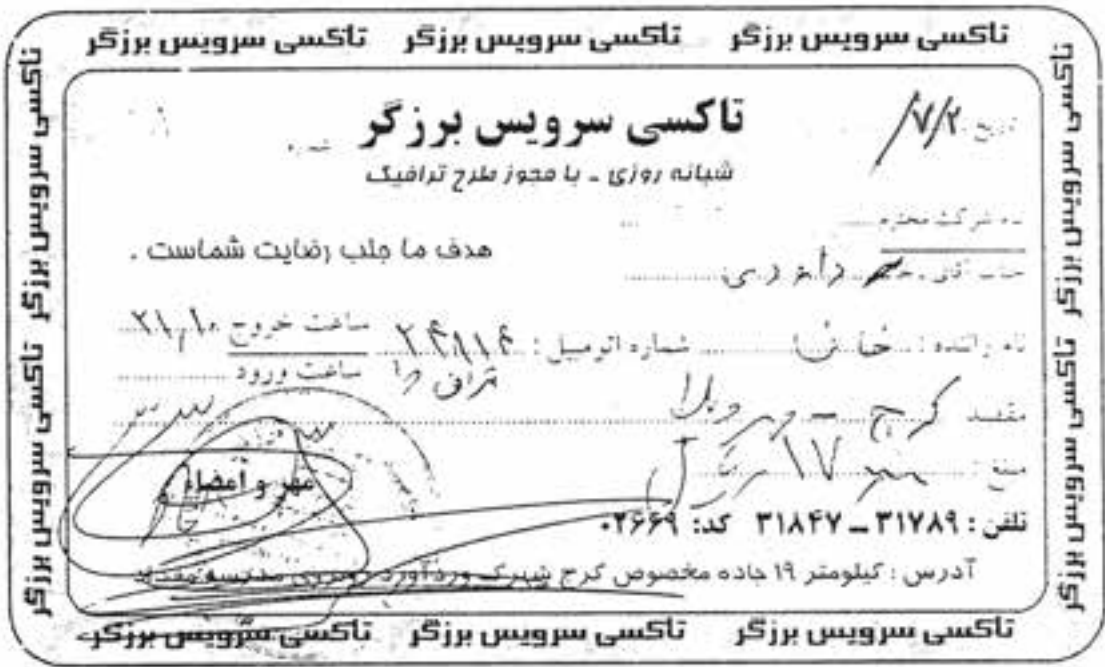 تاکسی سرویس برزگر تاکسی سرویس برزگر تاکسی سرویس برزگر
تاکسی سرویس برزگر تاکسی سرویس برزگر
تاکسی سرویس برزگر
تاریخ ۷/۲/
شماره
شبانه روزی ـ با مجوز طرح ترافیک
نام شرکت محترم
هدف ما جلب رضایت شماست .
جناب آقای ـ خانم
نام راننده : شماره اتومبیل : ۲۴۸۱۴ ساعت خروج ۲۱,۱۰
ساعت ورود
مقصد کرج –
مبلغ : ۱۷
مهر و امضاء
تلفن : ۳۱۷۸۹ ــ ۳۱۸۴۷ کد: ۰۲۶۶۹
آدرس : کیلومتر ۱۹ جاده مخصوص کرج شهرک وردآورد روبروی مدرسه مقداد
تاکسی سرویس برزگر تاکسی سرویس برزگر
تاکسی سرویس برزگر تاکسی سرویس برزگر تاکسی سرویس برزگر